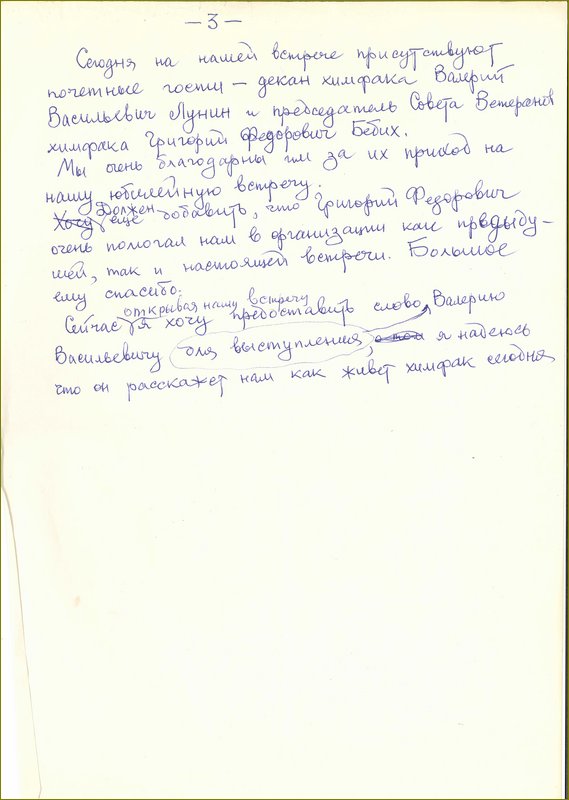 — 3 —
Сегодня на нашей встрече присутствуют
почетные гости — декан химфака Валерий
Васильевич Лунин и председатель Совета Ветеранов
химфака Григорий Федорович Бебих.
Мы очень благодарны им за их приход на
нашу юбилейную встречу.
Должен
Хочу еще добавить, что Григорий Федорович
очень помогал нам в организации как предыду-
щей, так и настоящей встречи. Большое
ему спасибо.
открывая нашу встречу
Сейчас я хочу предоставить слово Валерию
Васильевичу для выступления, я надеюсь
что он расскажет нам как живет химфак сегодня